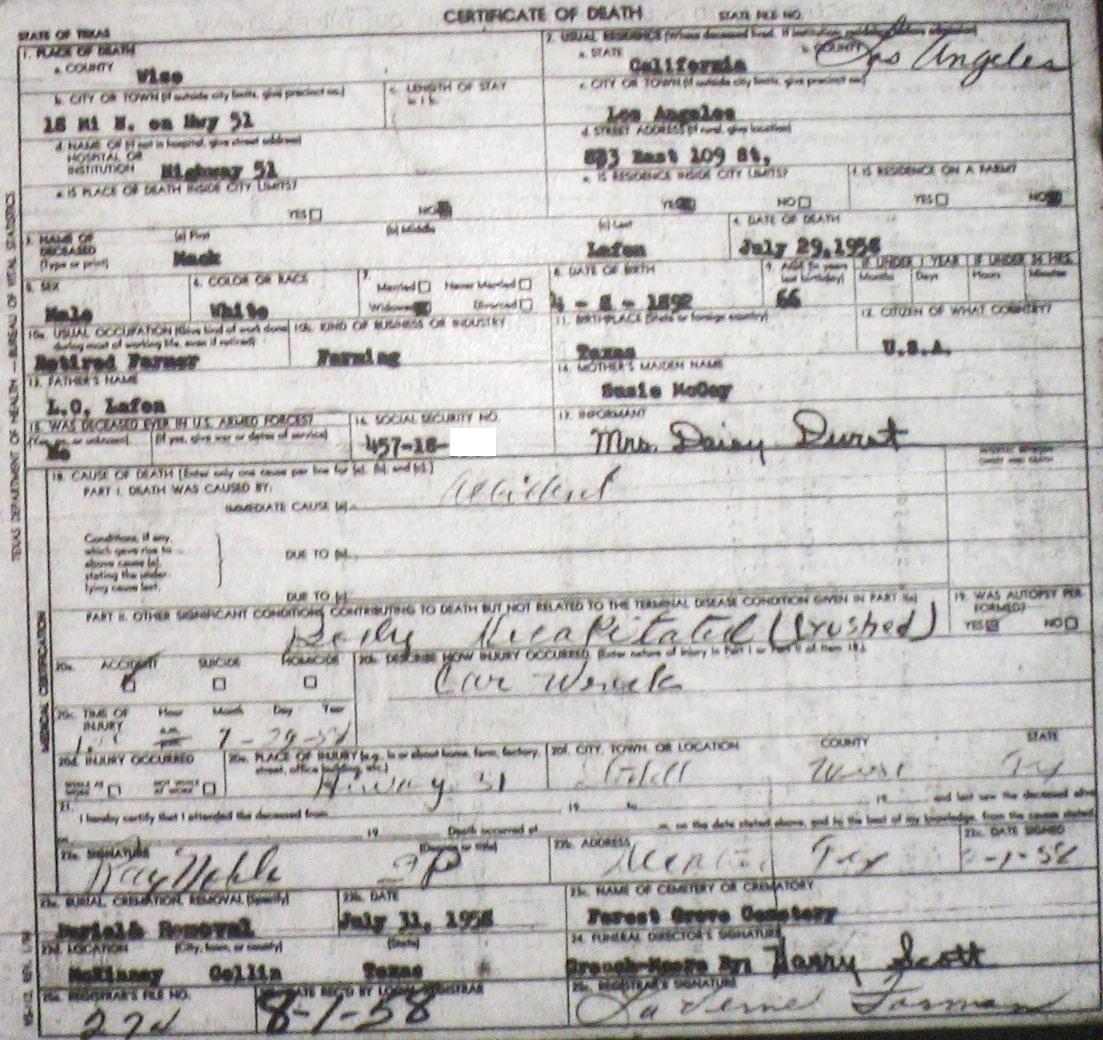 CERTIFICATE OF DEATH STATE FILE NO.
STATE OF TEXAS
1. PLACE OF DEATH
2. USUAL RESIDENCE (Where deceased lived. If institution,
a. COUNTY Wise
a. STATE California b. COUNTY Los Angeles
b. CITY OR TOWN (If outside city limits, give precinct no.)
18 Mi N. on Hwy 51
c. LENGTH OF STAY in 1 b.
c. CITY OR TOWN (If outside city limits, give precinct no.)
Los Angeles
d. NAME OF (If not in hospital, give street address) HOSPITAL OR INSTITUTION
Highway 51
d. STREET ADDRESS (If rural, give location)
East 109 St,
e. IS PLACE OF DEATH INSIDE CITY LIMITS?
YES NO
e. IS RESIDENCE INSIDE CITY LIMITS?
YES NO
f. IS RESIDENCE ON A FARM?
YES NO
3. NAME OF DECEASED (Type or print)
(a) First (b) Middle (c) Last
Mack Lafon
4. DATE OF DEATH
July 29, 1958
5. SEX
Male
6. COLOR OR RACE
White
7. Married Never Married
Widowed Divorced
8. DATE OF BIRTH
4 - 8 - 1892
9. AGE (In years last birthday)
66
IF UNDER 1 YEAR IF UNDER 24 HRS.
Months Days Hours Minutes
10a. USUAL OCCUPATION (Give kind of work done during most of working life, even if retired)
Retired Farmer
10b. KIND OF BUSINESS OR INDUSTRY
Farming
11. BIRTHPLACE (State or foreign country)
Texas
12. CITIZEN OF WHAT COUNTRY?
U.S.A.
13. FATHER'S NAME
L.O. Lafon
14. MOTHER'S MAIDEN NAME
Susie McCoy
15. WAS DECEASED EVER IN U.S. ARMED FORCES?
(Yes, no, or unknown) (If yes, give war or dates of service)
No
16. SOCIAL SECURITY NO.
457-18-
17. INFORMANT
Mrs. Daisy Durst
18. CAUSE OF DEATH [Enter only one cause per line for (a), (b), and (c).]
INTERVAL BETWEEN ONSET AND DEATH
PART I. DEATH WAS CAUSED BY:
IMMEDIATE CAUSE (a) accident
Conditions, if any,
which gave rise to
above cause (a),
stating the under-
lying cause last.
DUE TO (b)
DUE TO (c)
PART II. OTHER SIGNIFICANT CONDITIONS CONTRIBUTING TO DEATH BUT NOT RELATED TO THE TERMINAL DISEASE CONDITION GIVEN IN PART I(a)
(crushed)
19. WAS AUTOPSY PERFORMED?
YES NO
20a. ACCIDENT SUICIDE HOMICIDE
20b. DESCRIBE HOW INJURY OCCURRED. (Enter nature of injury in Part I or Part II of item 18.)
Car Wreck
20c. TIME OF INJURY Hour Month Day Year
7-29-58
20d. INJURY OCCURRED
WHILE AT WORK NOT WHILE AT WORK
20e. PLACE OF INJURY (e.g., in or about home, farm, factory, street, office building, etc.)
Hiway 51
20f. CITY, TOWN, OR LOCATION COUNTY STATE
Wise Tex
21. I hereby certify that I attended the deceased from 19 to 19 and last saw the deceased alive
on 19 Death occurred at m. on the date stated above, and to the best of my knowledge, from the causes stated
22a. SIGNATURE (Degree or title)
JP
22b. ADDRESS
Tex
22c. DATE SIGNED
-1-58
23a. BURIAL, CREMATION, REMOVAL (Specify)
Burial& Removal
23b. DATE
July 31, 1958
23c. NAME OF CEMETERY OR CREMATORY
Forest Grove Cemetery
23d. LOCATION (City, town, or county) (State)
McKinney Collin Texas
24. FUNERAL DIRECTOR'S SIGNATURE
Crouch-Moore By: Harry Scott
25a. REGISTRAR'S FILE NO.
25b. DATE REC'D BY LOCAL REGISTRAR
8-1-58
25c. REGISTRAR'S SIGNATURE
La Verne
TEXAS DEPARTMENT OF HEALTH — BUREAU OF VITAL STATISTICS
MEDICAL CERTIFICATION